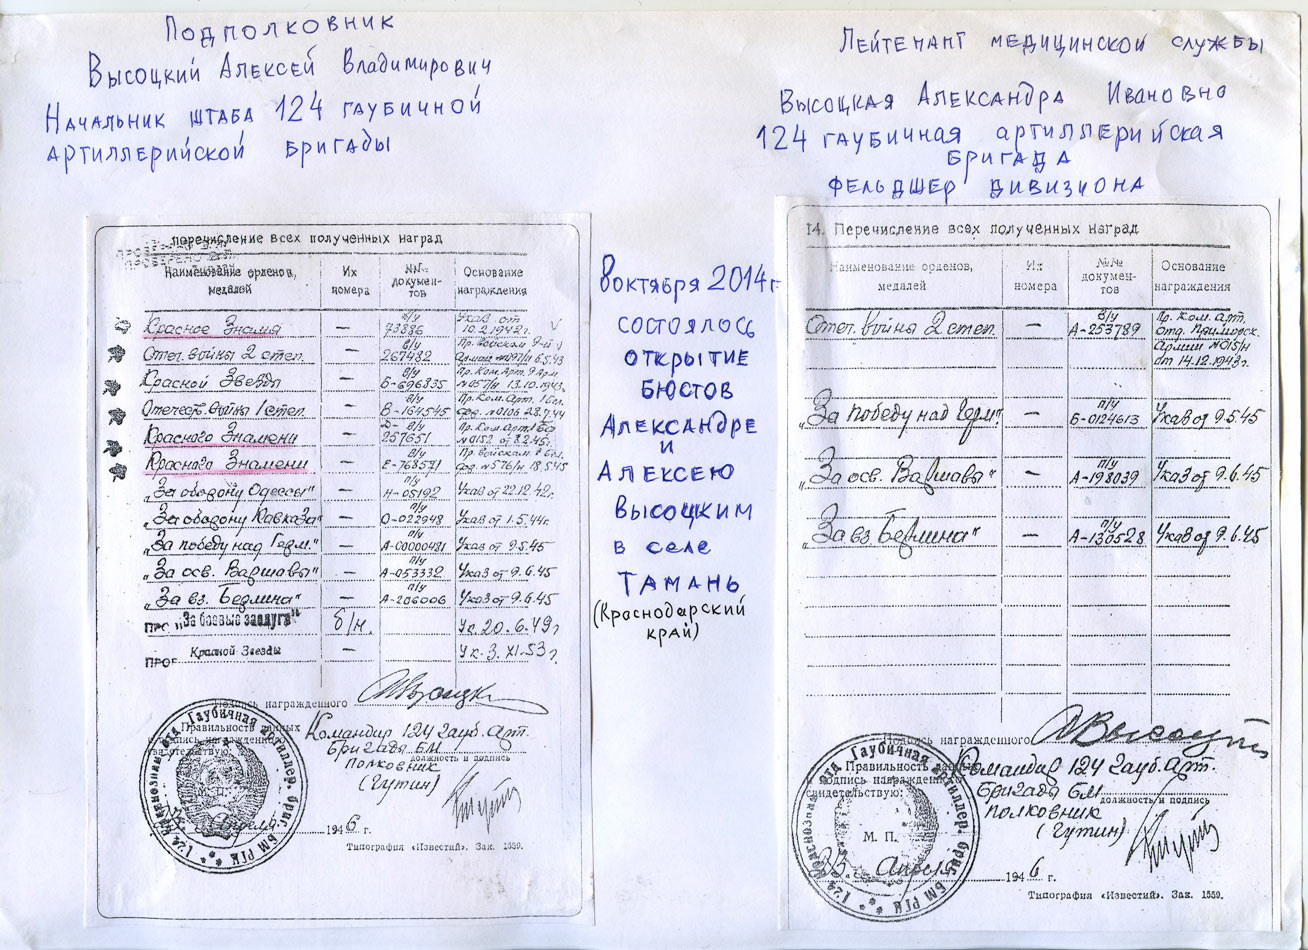 Подполковник
Высоцкий Алексей Владимирович
Начальник штаба 124 гаубичной
артиллерийской бригады
Лейтенант медицинской службы
Высоцкая Александра Ивановно
124 гаубичная артиллерийская
бригада
фельдшер дивизиона
8 октября 2014 г.
состоялось
открытие
бюстов
Александре
и
Алексею
Высоцким
в селе
Тамань
(Краснодарский
край)
перечисление всех полученных наград
ПРОВЕРЕНО
Наименование орденов, медалей | Их номера | №№ документов | Основание награждения
Красное Знамя — в/у 73886 Указ от 10.2.1942г. V
Отеч. войны 2 степ. — в/у 267482 6.5.43
Красной Звезды — в/у Б-696835 Пр. Ком. Арт. 9 Арм. №057/н 13.10.1943г.
Отечеств. войны 1 степ. — в/у Б-164545 Пр. Ком. Арт. 1 Бел. №0106 28.7.44
Красного Знамени — 257651 №0152 от 8.2.45г.
Красного Знамени — в/у Е-768571 №576/н 18.5.45
„За оборону Одессы" — п/у Н-05192 Указ от 22.12.42г.
„За оборону Кавказа" — п/у О-022948 Указ от 1.5.44г.
„За победу над Герм." — п/у А-00000481 Указ от 9.5.45
„За осв. Варшавы" — п/у А-053332 Указ от 9.6.45
„За вз. Берлина" — п/у А-206006 Указ от 9.6.45
„За боевые заслуги" б/н. Ук. 20.6.49 г
Красной Звезды — Ук. 3.XI.53 г.
Подпись награжденного
Правильность данных
и подпись награжденного
свидетельствую:
Командир 124 гауб. Арт.
бригады БМ
должность и подпись
полковник
(Гутин)
М. П.
апреля 1946 г.
Типография «Известий». Зак. 1559.
14. Перечисление всех полученных наград
Наименование орденов, медалей | Их номера | №№ документов | Основание награждения
Отеч. войны 2 степ. — в/у А-253789 Пр. Ком. Арт. Отд. Приморск. Армии №015/н от 14.12.1943г.
„За победу над Герм." — п/у Б-0124613 Указ от 9.5.45
„За осв. Варшавы" — п/у А-198039 Указ от 9.6.45
„За вз Берлина" — п/у А-130528 Указ от 9.6.45
Подпись награжденного
Правильность данных
и подпись награжденного
свидетельствую:
Командир 124 гауб. Арт.
бригады БМ
должность и подпись
полковник
(Гутин)
М. П.
25 Апреля 1946 г.
Типография «Известий». Зак. 1559.